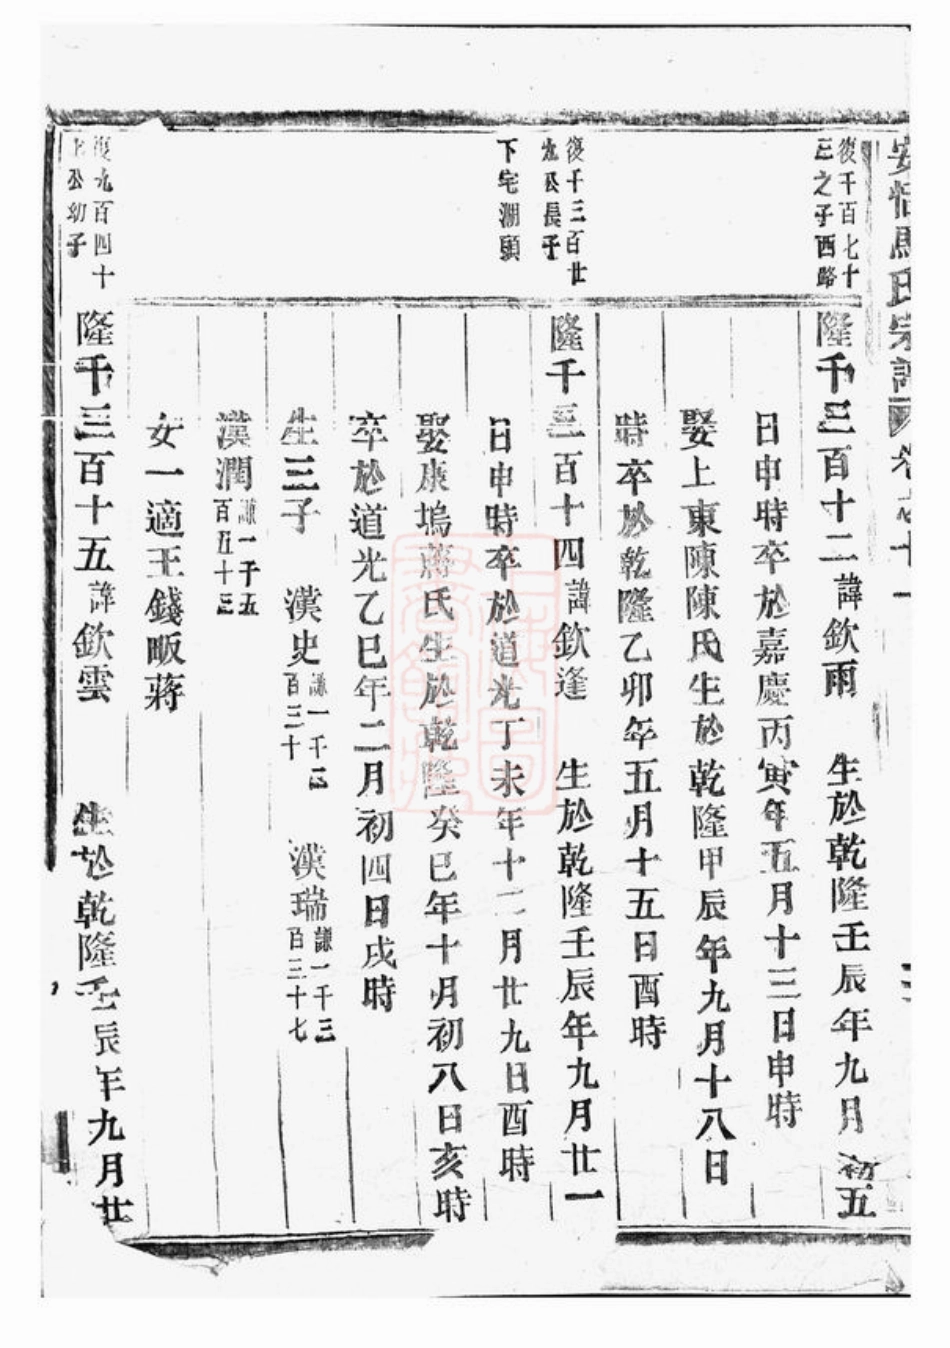 安恬馬氏宗譜 卷之十一
復千百七十
三之子西路
隆千三百十二諱欽雨 生於乾隆壬辰年九月初五
日申時卒於嘉慶丙寅年五月十三日申時
娶上東陳陳氏生於乾隆甲辰年九月十八日
時卒於乾隆乙卯年五月十五日酉時
復千三百廿
九公長子
下宅湖頭
隆千三百十四諱欽逢 生於乾隆壬辰年九月廿一
日申時卒於道光丁未年十二月廿九日酉時
娶康塢蔣氏生於乾隆癸巳年十月初八日亥時
卒於道光乙巳年二月初四日戌時
生三子 漢史謙一千三百三十 漢瑞謙一千三百三十七
漢潤謙一千五百五十三
女一適王錢畈蔣
復九百四十
上公幼子
隆千三百十五諱欽雲 生於乾隆壬辰年九月廿